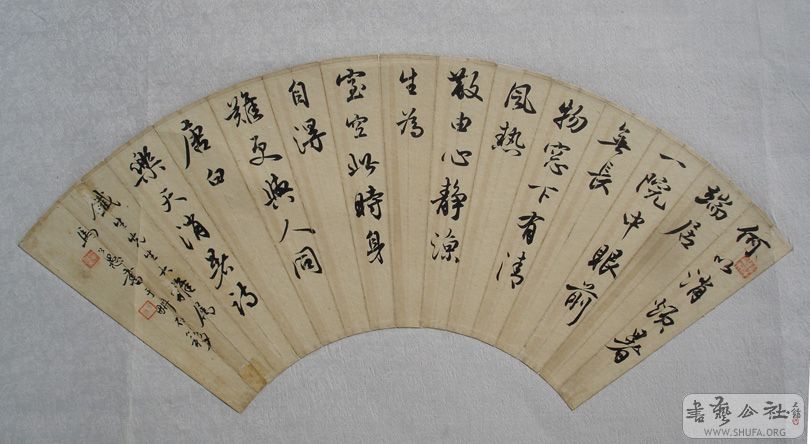 何以消煩暑
端居
一院中眼前
無長
物窓下有清
風熱
散由心静涼
生為
室空此時身
自得
難更與人同
唐白
樂天消暑詩
生先生大雅屬
書藝公社
WWW.SHUFA.ORG